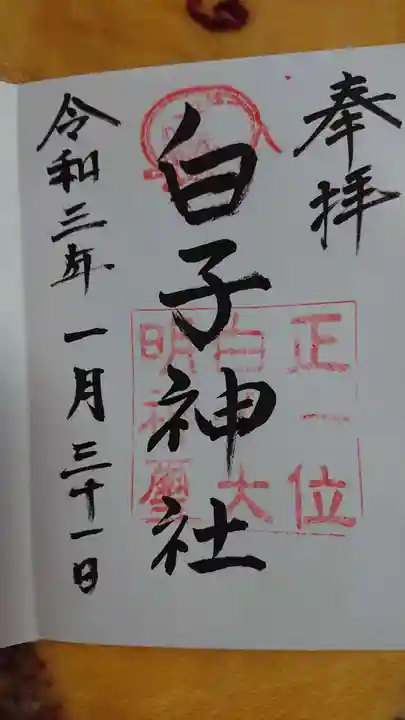 奉拝
白子神社
令和三年一月三十一日
正一位
白子大
明神璽